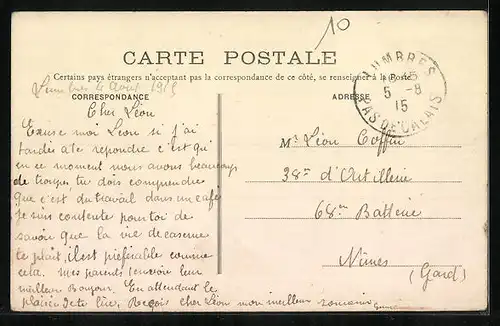 10
CARTE POSTALE
Certains pays étrangers n'acceptent pas la correspondance de ce côté, se renseigner à la Poste
CORRESPONDANCE
ADRESSE
LUMBRES
5 -8
15
PAS DE CALAIS
Lumbres 4 Août 1915
Cher Léon
Excuse moi Léon si j'ai
tardée a te repondre c'est qu'i
en ce moment nous avons beaucoup
de troupes, tu dois comprendre
que c'est du travail dans un café
je suis contente pour toi de
savoir que la vie de caserne
te plait, il est préférable comme
cela. Mes parents t'envoie leur
meilleur Bonjour. En attendant le
plaisir de te lire, Reçois cher Léon mon meilleur souvenir
Mr Léon Coffin
38me d'Artillerie
68me Batterie
Nimes
(Gard)